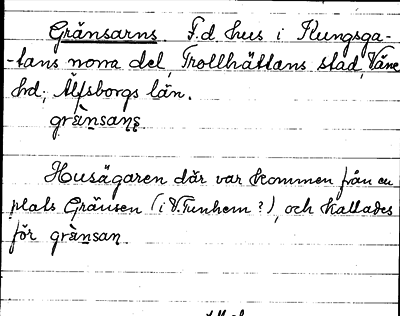 Gränsarns F.d. hus i Kungsga-
-tans norra del, Trollhättans stad, Väne
hd, Älfsborgs län.
grä̀nsaṇṣ
Husägaren där var kommen från en
plats Gränsen (i V. Tunhem?), och kallades
för grä̀nsan